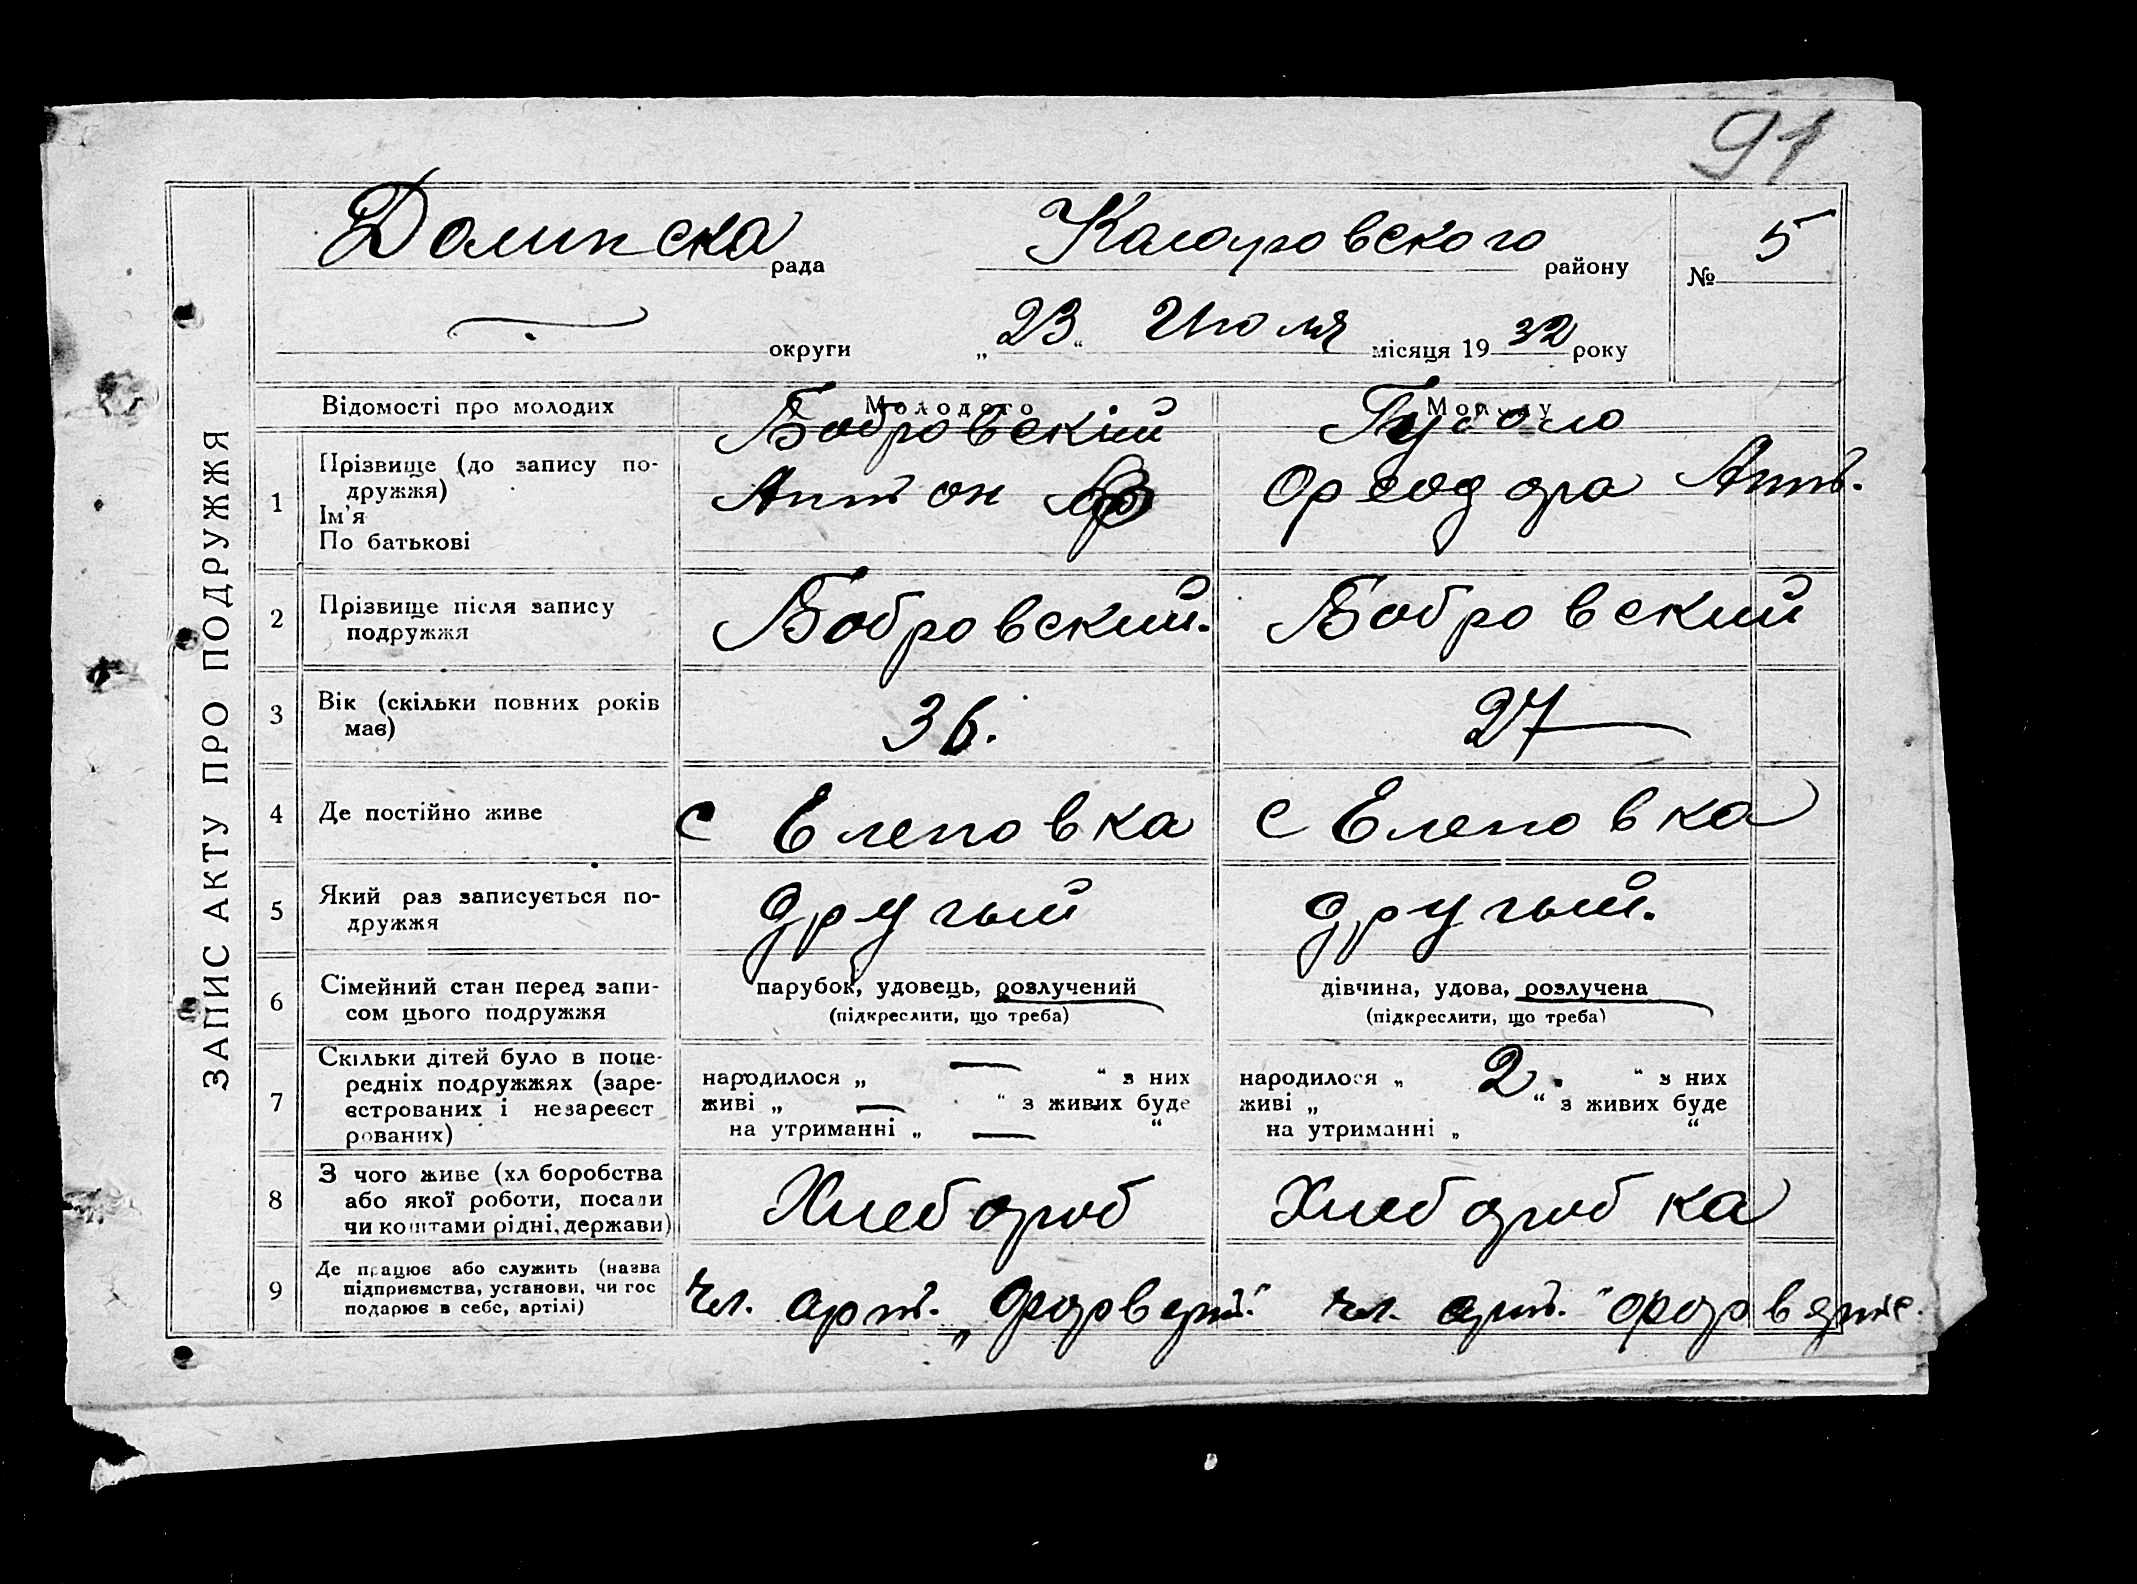 91
Долинска рада Кагарловского району № 5
округи „ 23 “ Июля місяця 19 32 року
ЗАПИС АКТУ ПРО ПОДРУЖЖЯ
Відомості про молодих Молодого Молоду
1 Прізвище (до запису по-
дружжя)
Ім'я
По батькові
Бобровский
Антон
Гусоло
Феодора Ант.
2 Прізвище після запису
подружжя
Бобровский. Бобровский
3 Вік (скільки повних років
має)
36. 27
4 Де постійно живе с Еленовка с Еленовка
5 Який раз записується по-
дружжя
другый другый.
6 Сімейний стан перед запи-
сом цього подружжя
парубок, удовець, розлучений
(підкреслити, що треба)
дівчина, удова, розлучена
(підкреслити, що треба)
7 Скільки дітей було в попе-
редніх подружжях (заре-
єстрованих і незареєст
рованих)
народилося „ — “ з них
живі „ — “ з живих буде
на утриманні „ — “
народилося „ 2. “ з них
живі „ “ з живих буде
на утриманні „ “
8 З чого живе (хл боробства
або якої роботи, посади
чи коштами рідні, держави)
Хлебороб Хлеборобка
9 Де працює або служить (назва
підприємства, установи, чи гос
подарює в себе, артілі)
чл. арт. „Форверт." чл. арт. "форвертс.